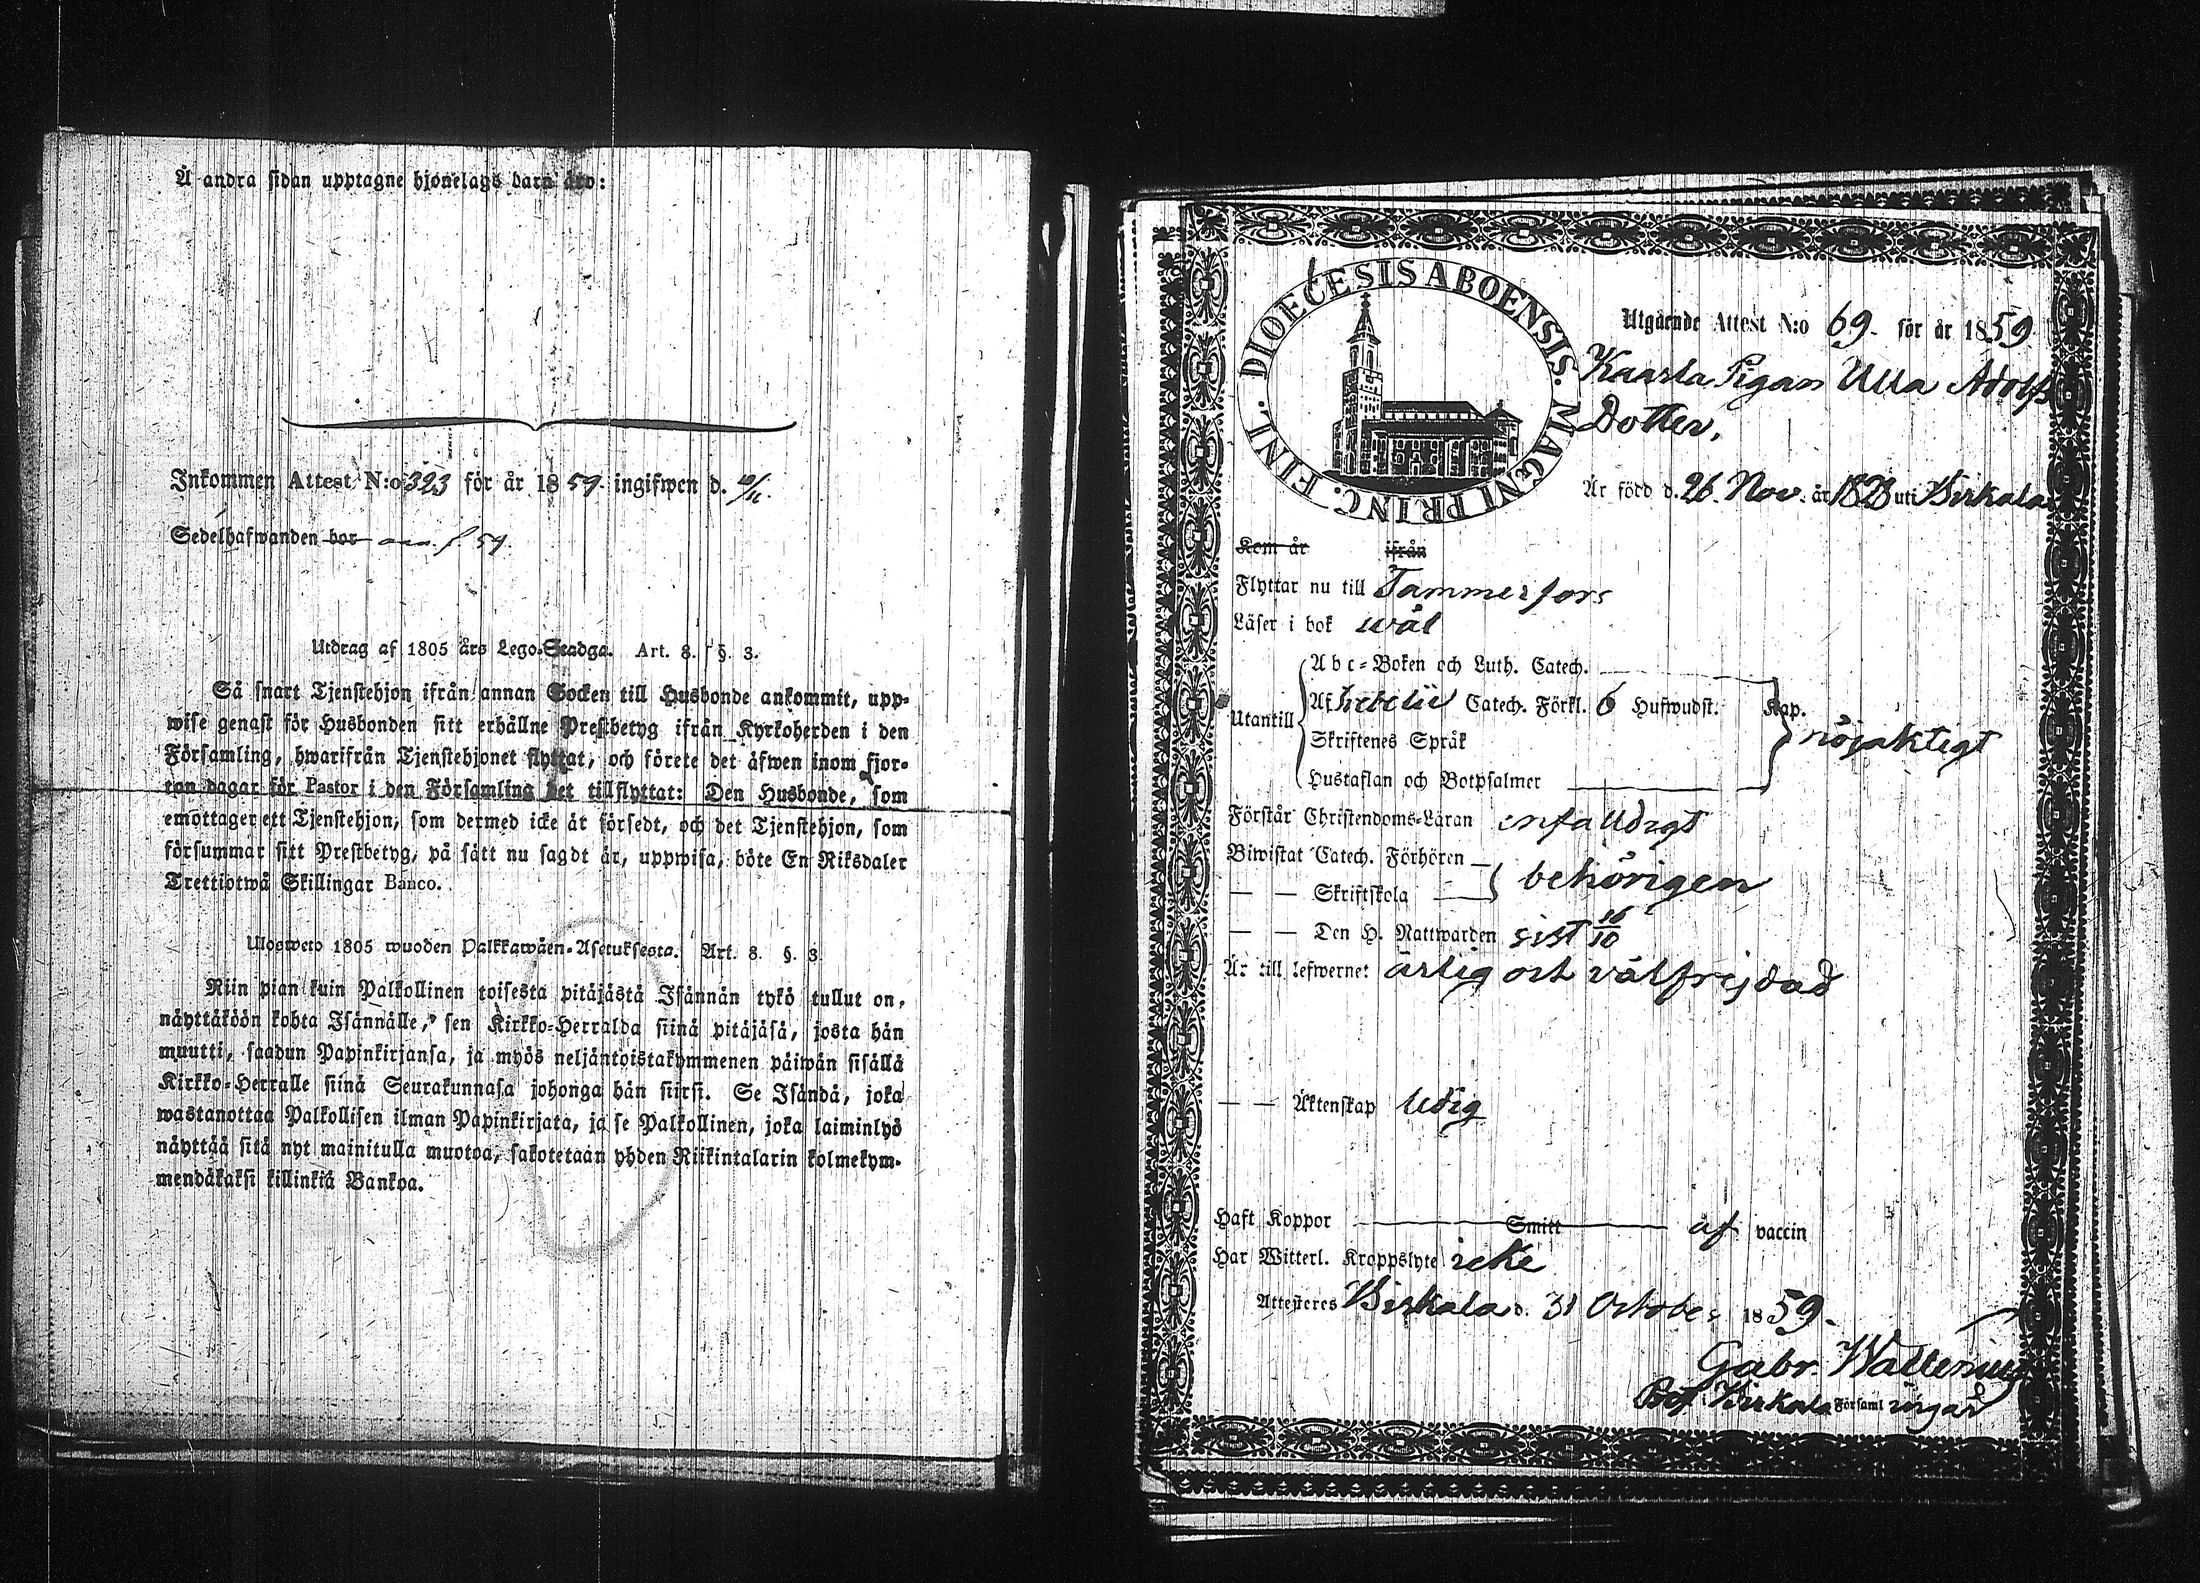 Å andra sidan upptagne hjonelags barn äro:
Inkommen Attest N:o 323 för år 1859. ingifwen d. 10/11.
Sedelhafwanden bor
Utdrag af 1805 års Lego-Stadga. Art. 8. §. 3.
Så snart Tjenstehjon ifrån annan Socken till Husbonde ankommit, upp-
wise genast för Husbonden sitt erhållne Prestbetyg ifrån Kyrkoherden i den
Församling, hwarifrån Tjenstehjonet flyttat, och förete det äfwen inom fjor-
ton dagar för Pastor i den Församling det tillflyttat: Den Husbonde, som
emottager ett Tjenstehjon, som dermed icke är försedt, och det Tjenstehjon, som
försummar sitt Prestbetyg, på sätt nu sagdt är, uppwisa, böte En Riksdaler
Trettiotwå Skillingar Banco.
Ulosweto 1805 wuoden Palkkawäen-Asetuksesta. Art. 8. §. 3.
Niin pian kuin Palkollinen toisesta pitäjästä Isännän tykö tullut on,
näyttäköön kohta Isännälle, sen Kirkko-Herralda siinä pitäjäsä, josta hän
muutti, saadun Papinkirjansa, ja myös neljäntoistakymmenen päiwän sisällä
Kirkko-Herralle siinä Seurakunnasa johonga hän siirsi. Se Isändä, joka
wastanottaa Palkollisen ilman Papinkirjata, ja se Palkollinen, joka laiminlyö
näyttää sitä nyt mainitulla muotoa, sakotetaan yhden Riikintalarin kolmekym-
mendäkaksi killinkiä Bankoa.
DIOECESIS ABOENSIS. MAGNI PRINC. FINL.
Utgående Attest N:o 69. för år 1859
Kaarla Pigan Ulla Adolfs
Dotter,
Är född d. 26. Nov. år 1828 uti Birkala
Kom år ifrån
Flyttar nu till Tammerfors
Läser i bok wäl
Utantill
Abc-Boken och Luth. Catech.
Af Catech. Förkl. 6 Hufwudst. Kap.
Skriftenes Språk
nöjaktigt
Hustaflan och Botpsalmer
Förstår Christendoms-Läran enfalldigt
Biwistat Catech. Förhören
— — Skriftskola behörigen
— — Den H. Nattwarden sist 16/10
Är till lefwernet ärlig och välfrejdad
— — Äktenskap ledig
Haft Koppor Smitt af vaccin
Har Witterl. Kroppslyte icke
Attesteres Birkala d. 31 October 1859.
Gabr. Wallenius
Birkala Församl